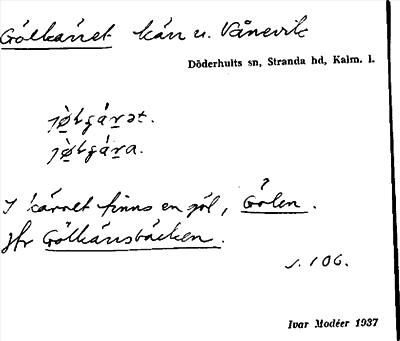 Gölkärret kärr u. Vånevik
Döderhults sn, Stranda hd, Kalm. l.
I kärret finns en göl, Gölen.
Jfr Gölkärrsbäcken.
s. 106.
Ivar Modéer 1937